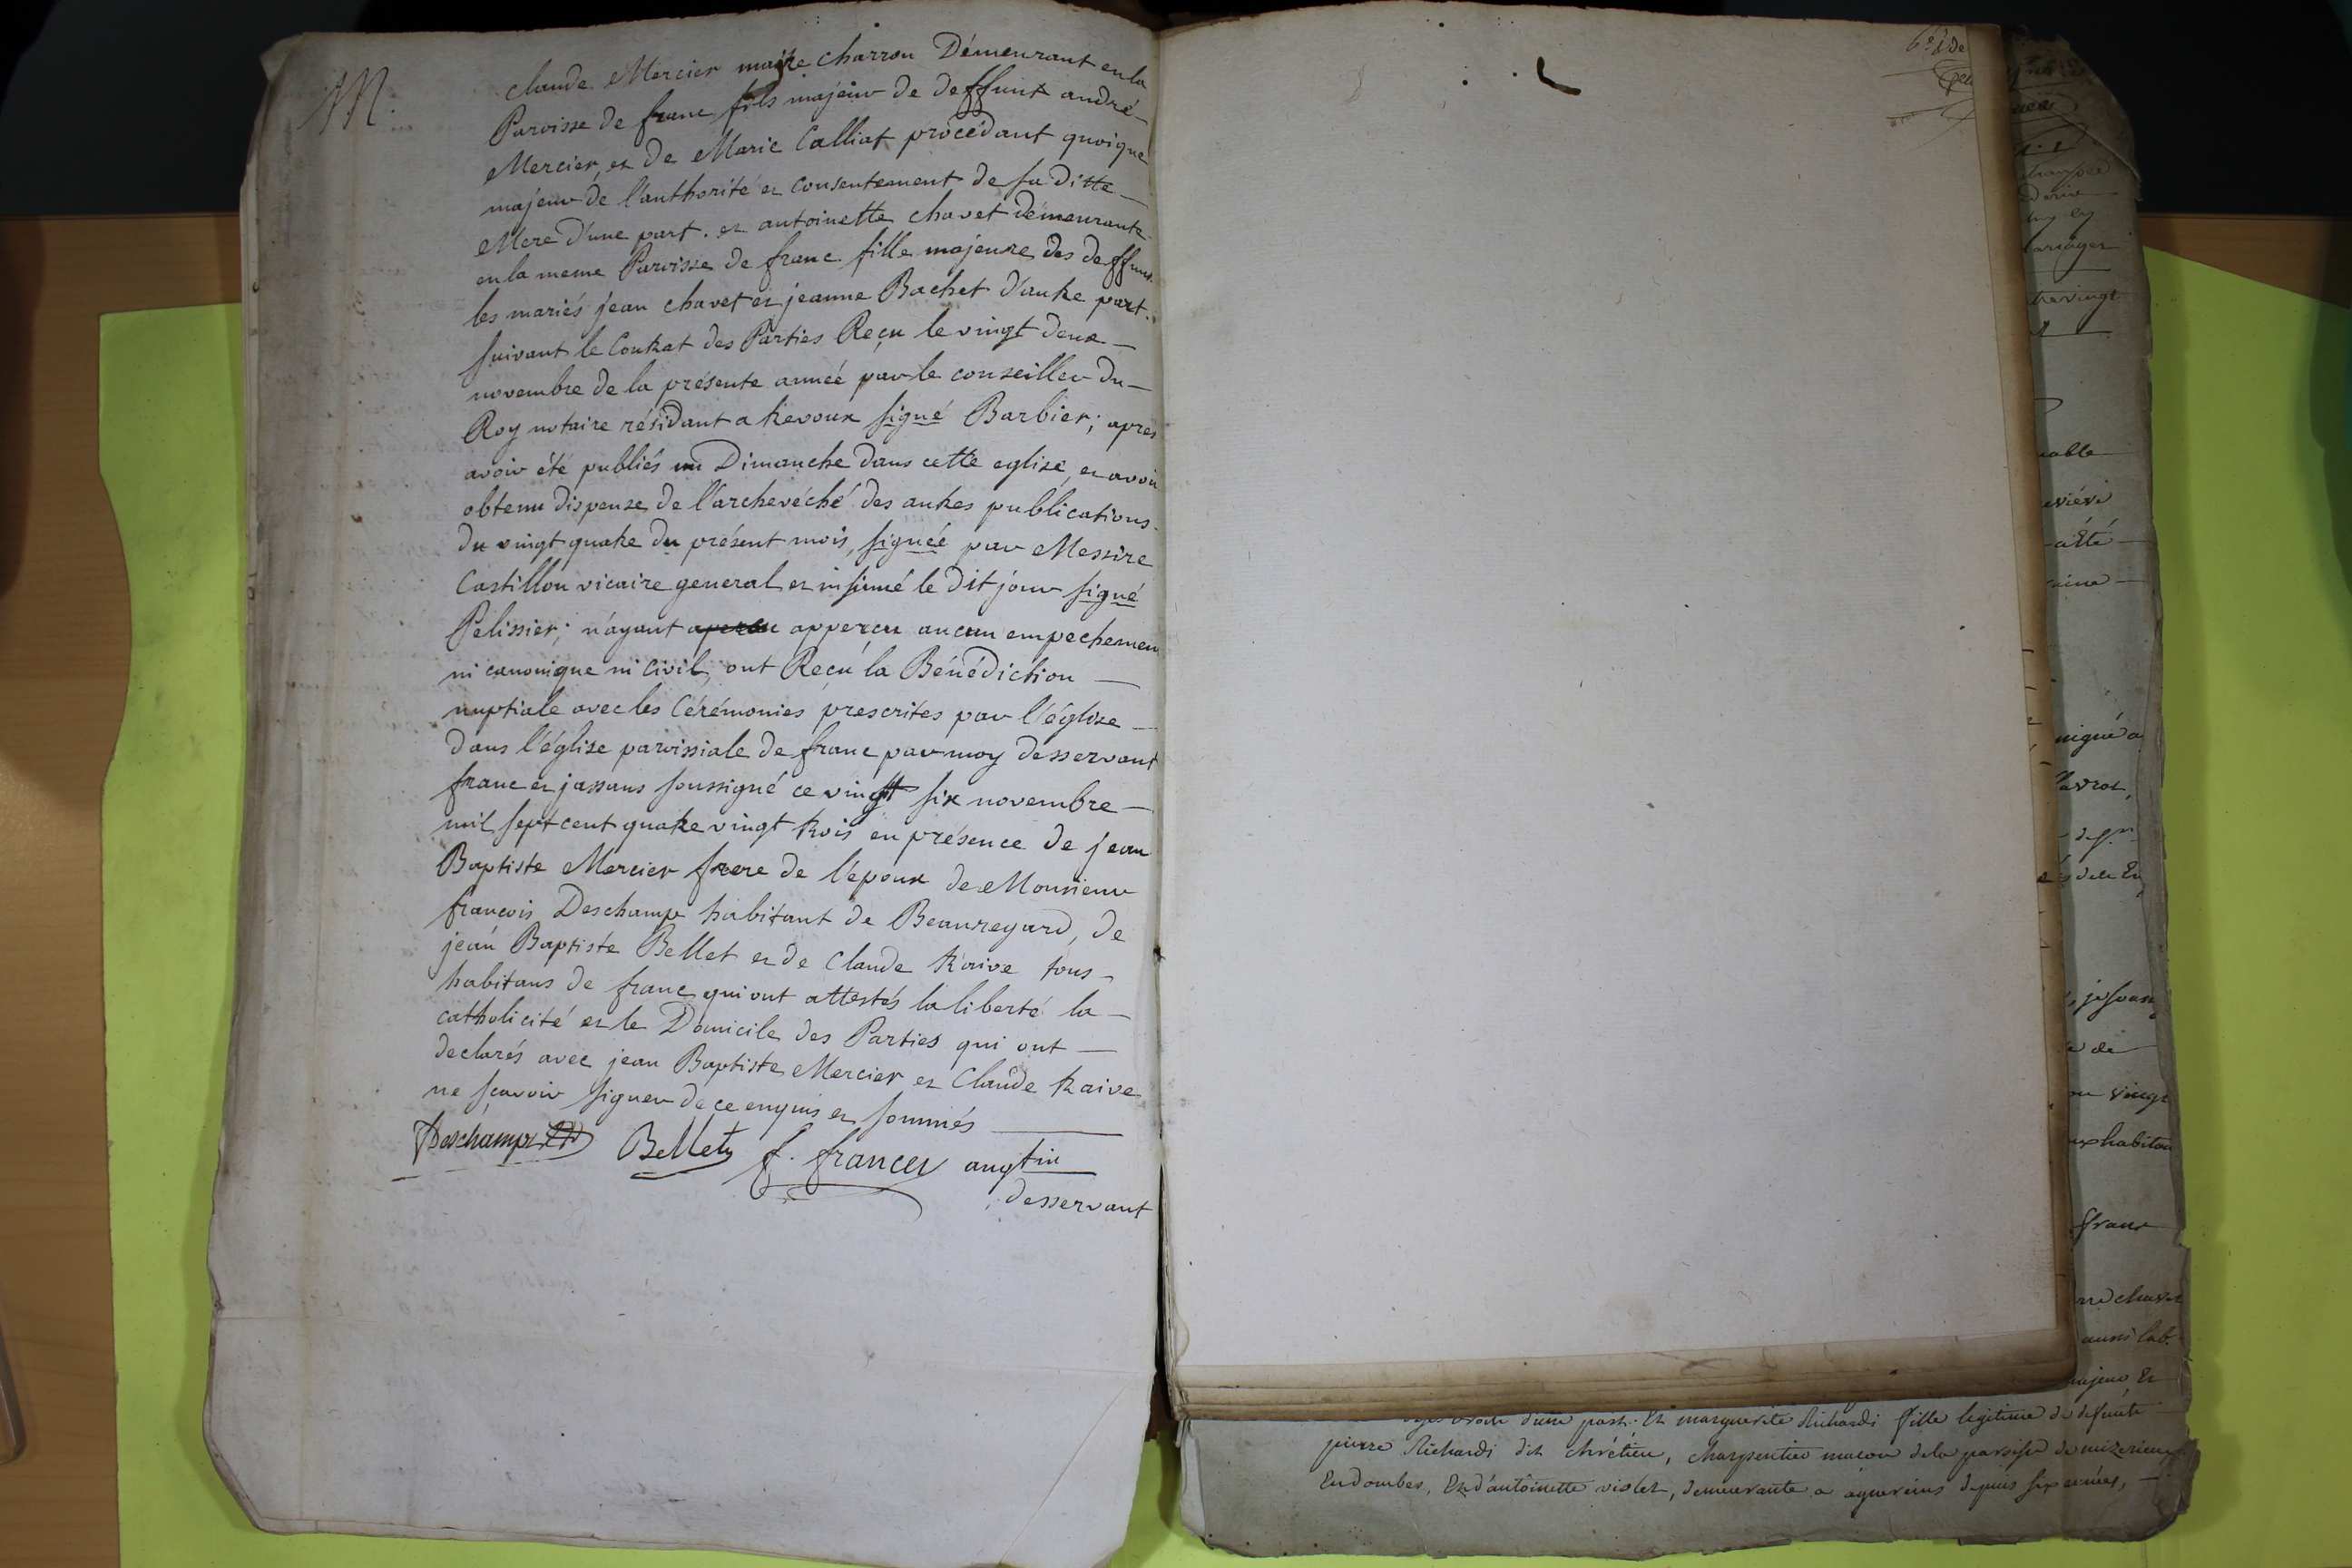 M.
claude Mercier maitre charron Démeurant en la
Paroisse de franc fils majeur de deffunt andré
Mercier, et de Marie Calliat procédant quoique
majeur de l'authorité et consentement de sa ditte
Mere d'une part. et antoinette chavet démeurante
en la meme Paroisse de franc fille majeure des deffunts
les mariés jean chavet et jeanne Bachet d'autre part.
suivant le Contrat des Parties Reçu le vingt deux
novembre de la présente année par le conseiller du
Roy notaire résidant a trevoux signé Barbier; apres
avoir été publiés un Dimanche dans cette eglise, et avoir
obtenu dispense de l'archevéché des autres publications
du vingt quatre du présent mois, signéé par Messire
Castillon vicaire general et insinué le dit jour signé
Pelissier; n'ayant apercu apperçu aucun empechement
ni canonique ni civil, ont Reçu la Bénédiction
nuptiale avec les Cérémonies prescrites par l'église
dans l'église paroissiale de franc par moy desservant
franc et jassans soussigné ce vingt six novembre
mil sept cent quatre vingt trois en présence de jean
Baptiste Mercier frere de l'époux de Monsieur
françois Deschamp habitant de Beauregard, de
jean Baptiste Bellet et de Claude traive tous
habitans de franc qui ont attestés la liberté la
catholicité et le Domicile des Parties qui ont
declarés avec jean Baptiste Mercier et Claude traive
ne sçavoir signer de ce enquis et sommés
Deschamps Bellet f. françois augtin
desservant
d'une part. Et marguerite Richardi fille legitime de defunte
pierre Richardi dit chrétien, charpentier macon de la paroisse de mizerieux
En dombes, Et d'antoinette violet, demeurante a aguereins depuis six années,